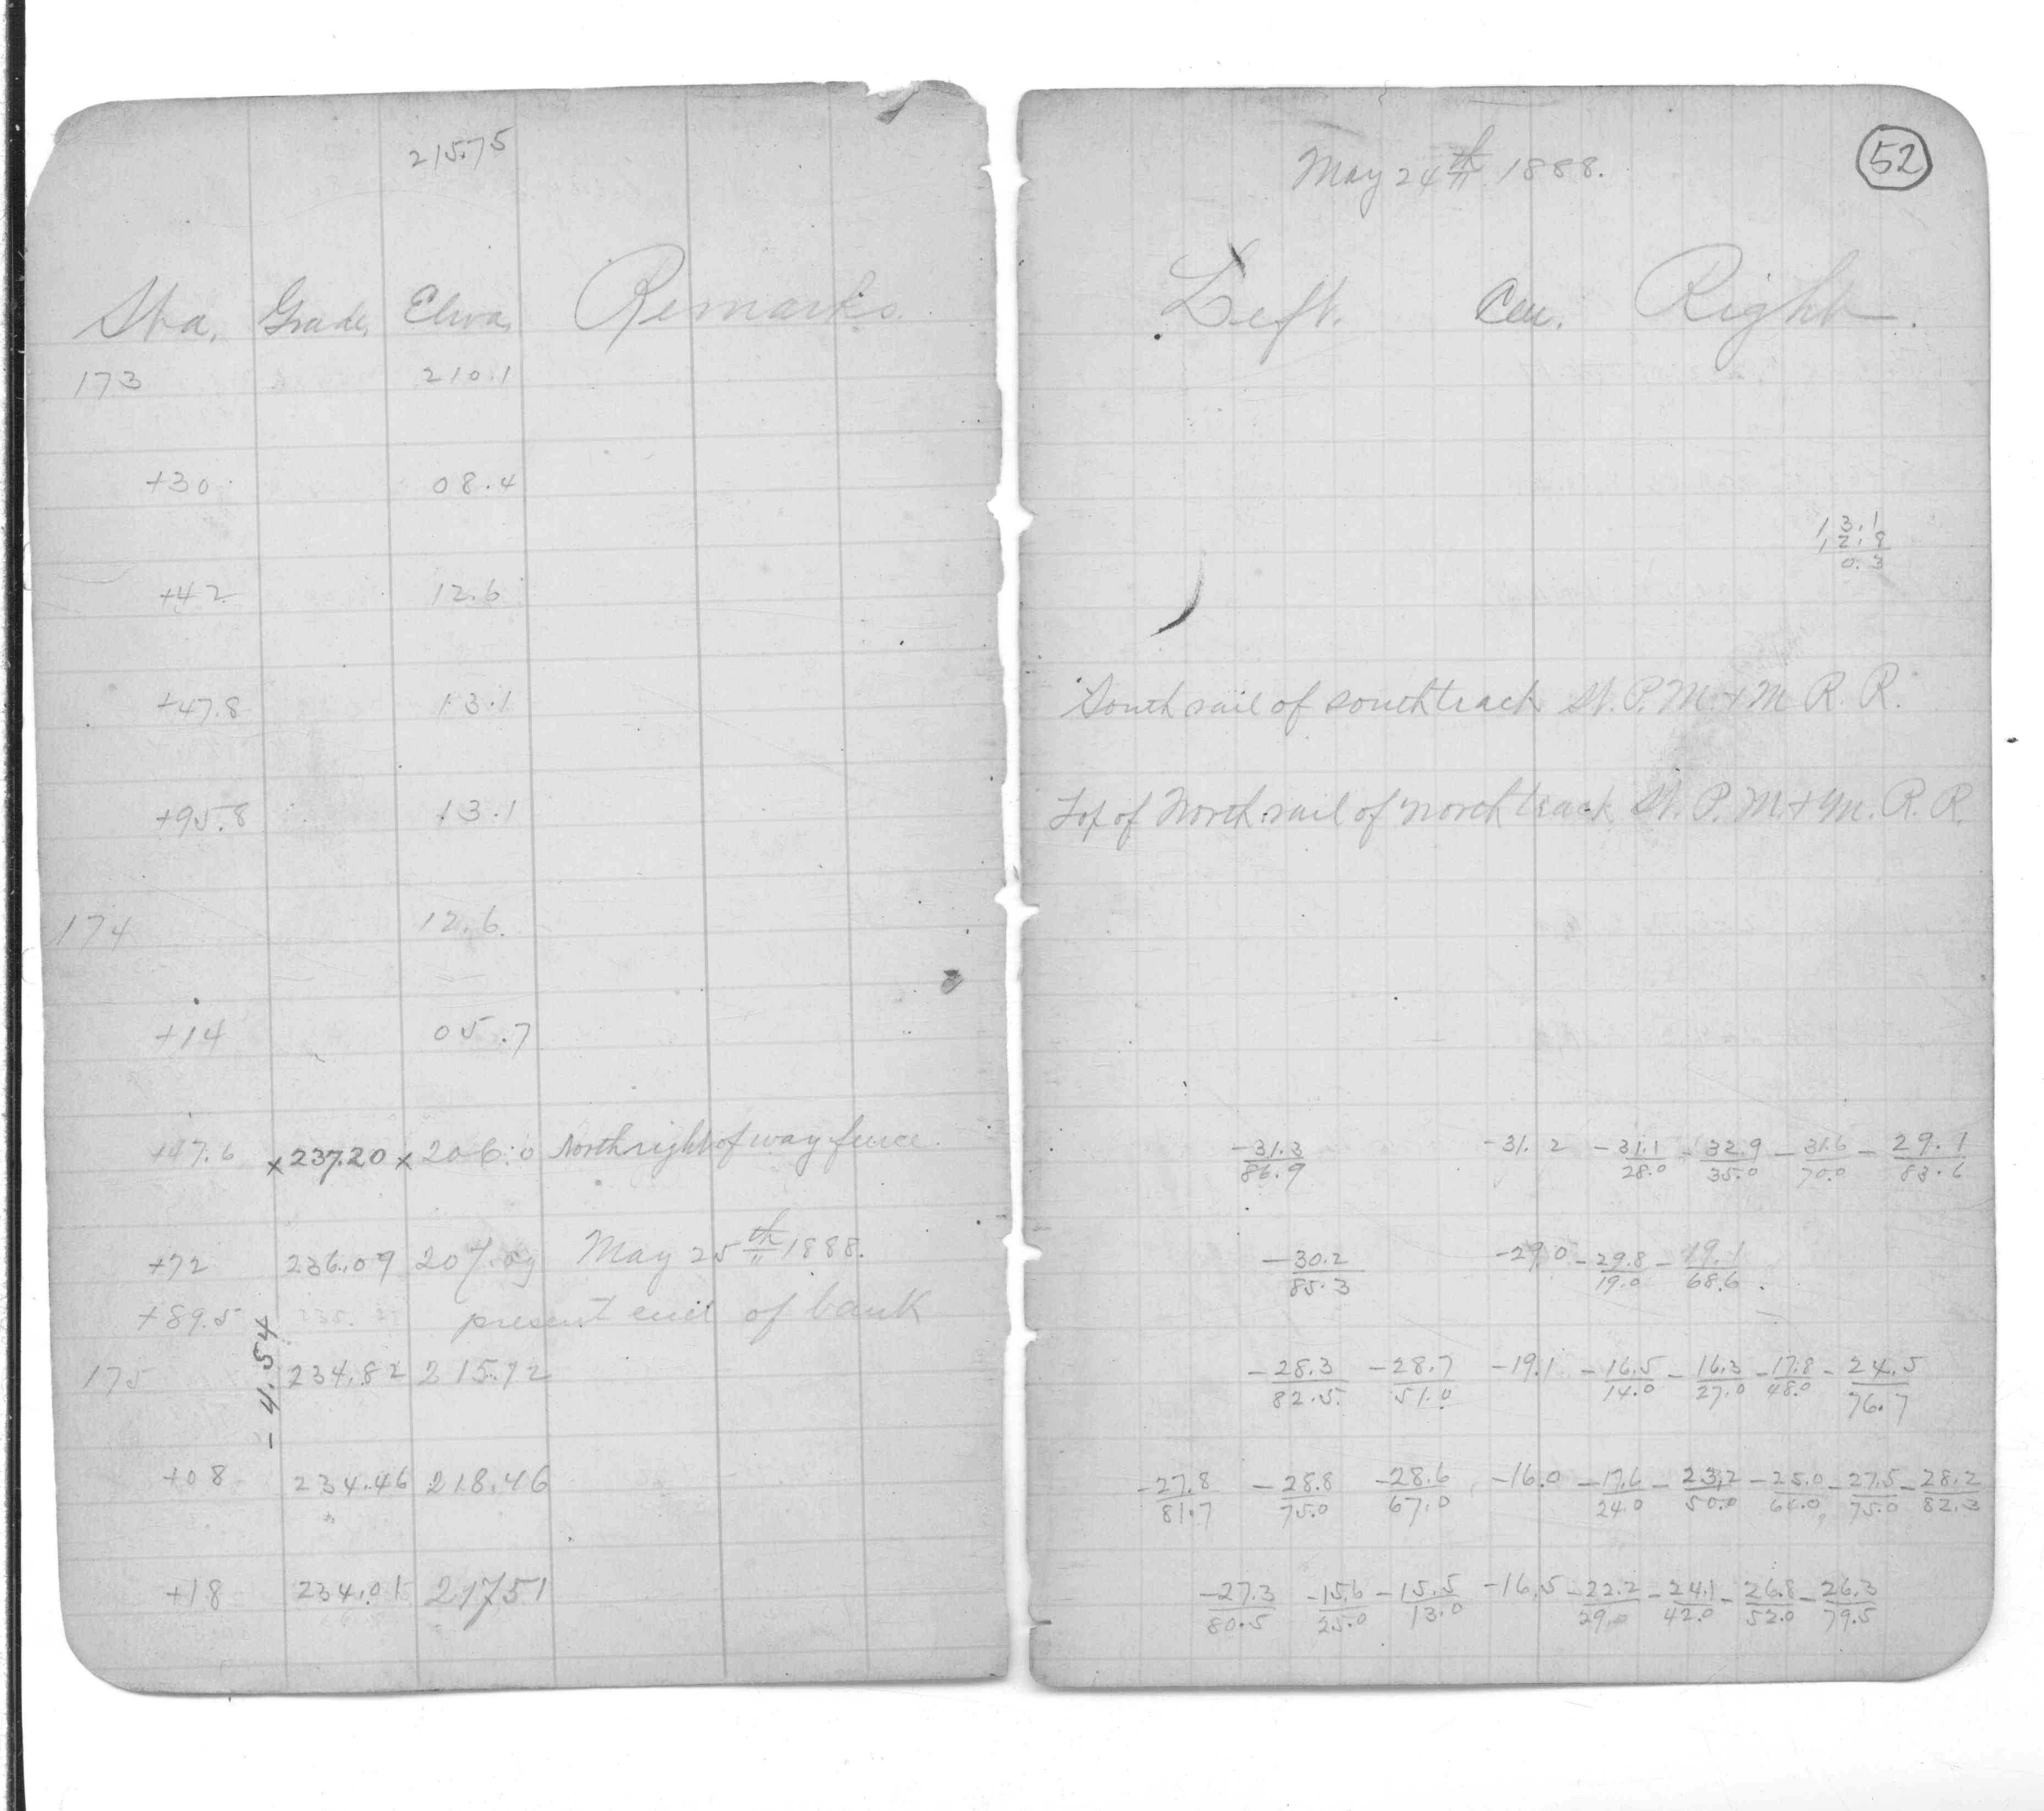 215.75
Sta. Grade. Eleva. Remarks.
173 210.1
+30 08.4
+42 12.6
+47.8 13.1
+95.8 13.1
174 12.6
+14 05.7
+47.6 x 237.20 x 206.0 North right of way fence.
+72 236.09 207.09 May 25th 1888.
+89.5 present end of bank
- 4.54
175 234.82 215.72
+08 234.46 218.46
+18 234.01 217.51
52
May 24th 1888.
Left. Cen. Right.
13.1
12.8
0.3
South rail of south track St. P. M. + M R. R.
Top of North rail of north track St. P. M. + M. R. R.
-31.3 -31.2 -31.1 - 32.9 - 31.6 - 29.1
86.9 28.0 35.0 70.0 83.6
-30.2 -29.0 - 29.8 - 19.1
85.3 19.0 68.6
-28.3 -28.7 -19.1 -16.5 - 16.3 - 17.8 - 24.5
82.5 51.0 14.0 27.0 48.0 76.7
-27.8 -28.8 -28.6 -16.0 -17.6 - 23.2 - 25.0 - 27.5 - 28.2
81.7 75.0 67.0 24.0 50.0 75.0 82.3
-27.3 -15.6 -15.5 -16.5 - 22.2 - 24.1 - 26.8 - 26.3
80.5 25.0 13.0 29.0 42.0 52.0 79.5